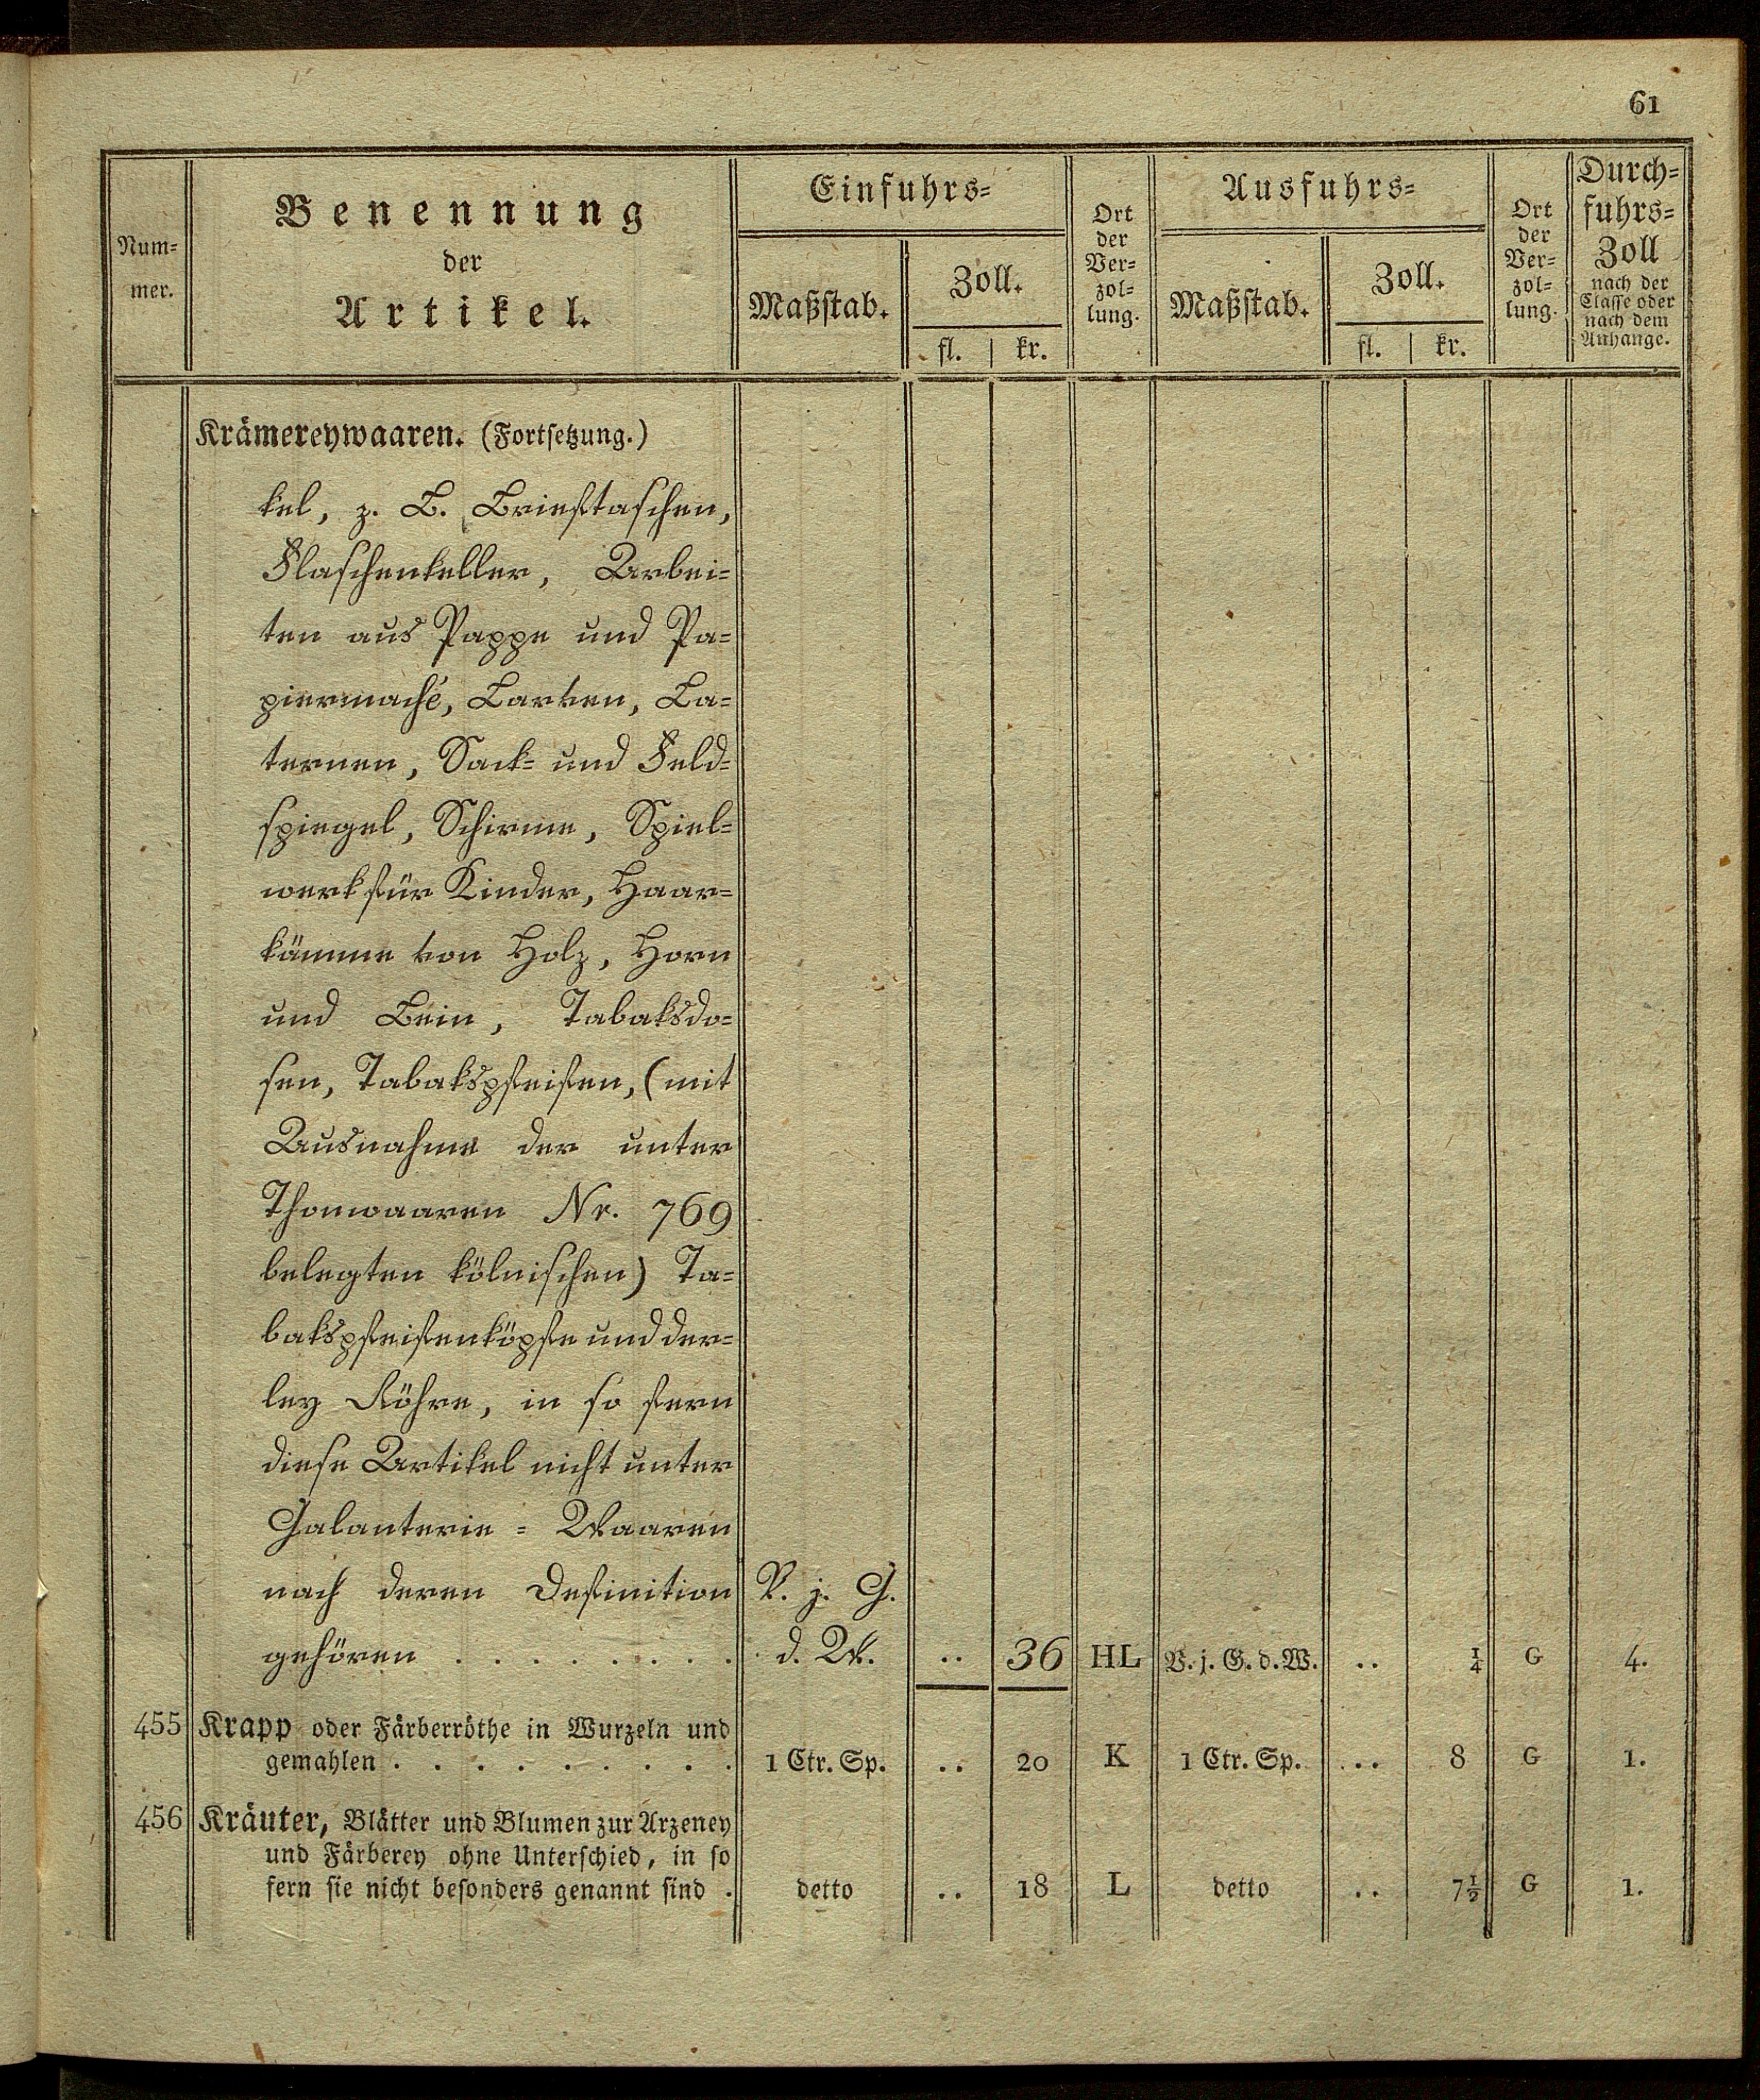 61
Num-
mer.
Benennung
der
Artikel.
Einfuhrs-
Maßstab.
Zoll.
fl. | kr.
Ort
der
Ver-
zol-
lung.
Ausfuhrs-
Maßstab.
Zoll.
fl. | kr.
Ort
der
Ver-
zol-
lung.
Durch-
fuhrs-
Zoll
nach der
Classe oder
nach dem
Anhange.
Krämereywaaren. (Fortsetzung.)
kel, z. B. Brieftaschen,
Flaschenkeller, Arbei-
ten aus Pappe und Pa-
piermaché, Larven, La-
ternen, Sack- und Feld-
spiegel, Schirme, Spiel-
werk für Kinder, Haar-
kämme von Holz, Horn
und Bein, Tabaksdo-
sen, Tabakspfeifen, (mit
Ausnahme der unter
Thonwaaren Nr. 769
belegten kölnischen) Ta-
bakspfeifenköpfe und der-
ley Röhre, in so fern
diese Artikel nicht unter
Galanterie-Waaren
nach deren Definition V. j. G.
gehören . . . . . . . . d. W. .. 36 HL V. j. G. d. W. .. ¼ G 4.
455 Krapp oder Färberröthe in Wurzeln und
gemahlen . . . . . . . . . 1 Ctr. Sp. .. 20 K 1 Ctr. Sp. .. 8 G 1.
456 Kräuter, Blätter und Blumen zur Arzeney
und Färberey ohne Unterschied, in so
fern sie nicht besonders genannt sind . detto .. 18 L detto .. 7½ G 1.